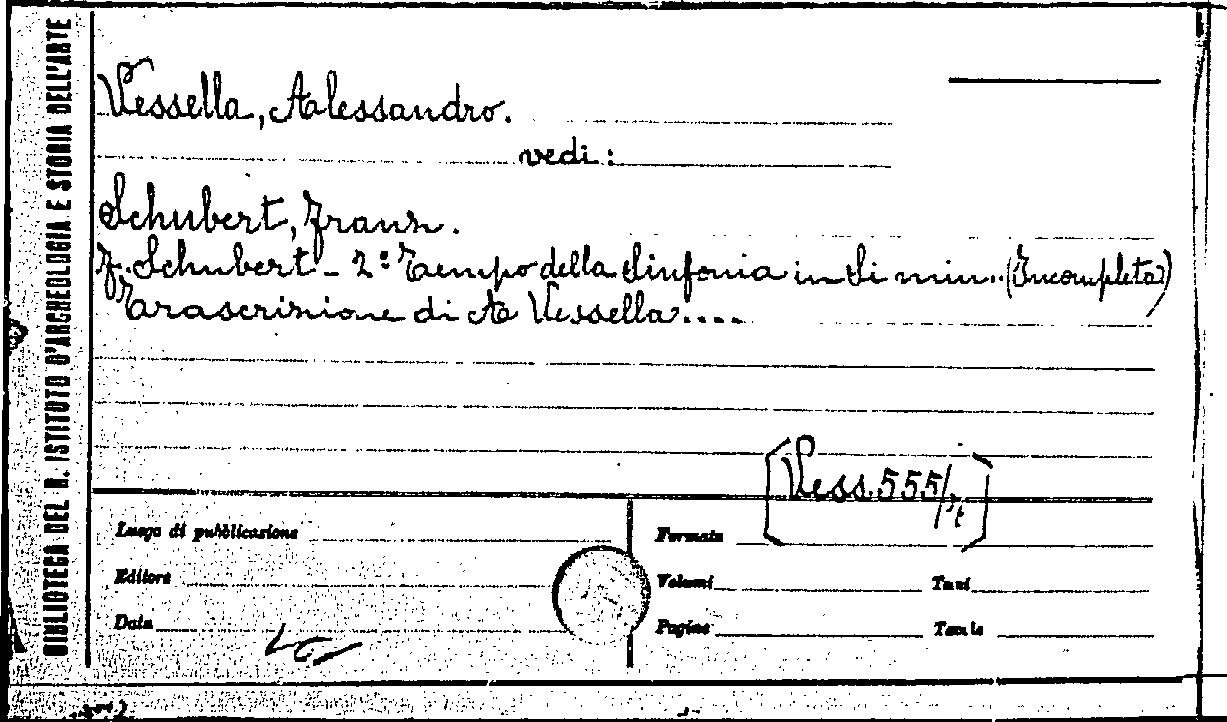 BIBLIOTECA DEL R. ISTITUTO D'ARCHEOLOGIA E STORIA DELL'ARTE
Vessella, Alessandro.
vedi:
Schubert, Franz.
F. Schubert - 2º Tempo della Sinfonia in Si min.. (Incompleta)
Trascrizione di A Vessella....
[Vess. 555/
Luogo di pubblicazione
Formato
Editore
Volumi
Tomi
Data
Pagine
Tavole